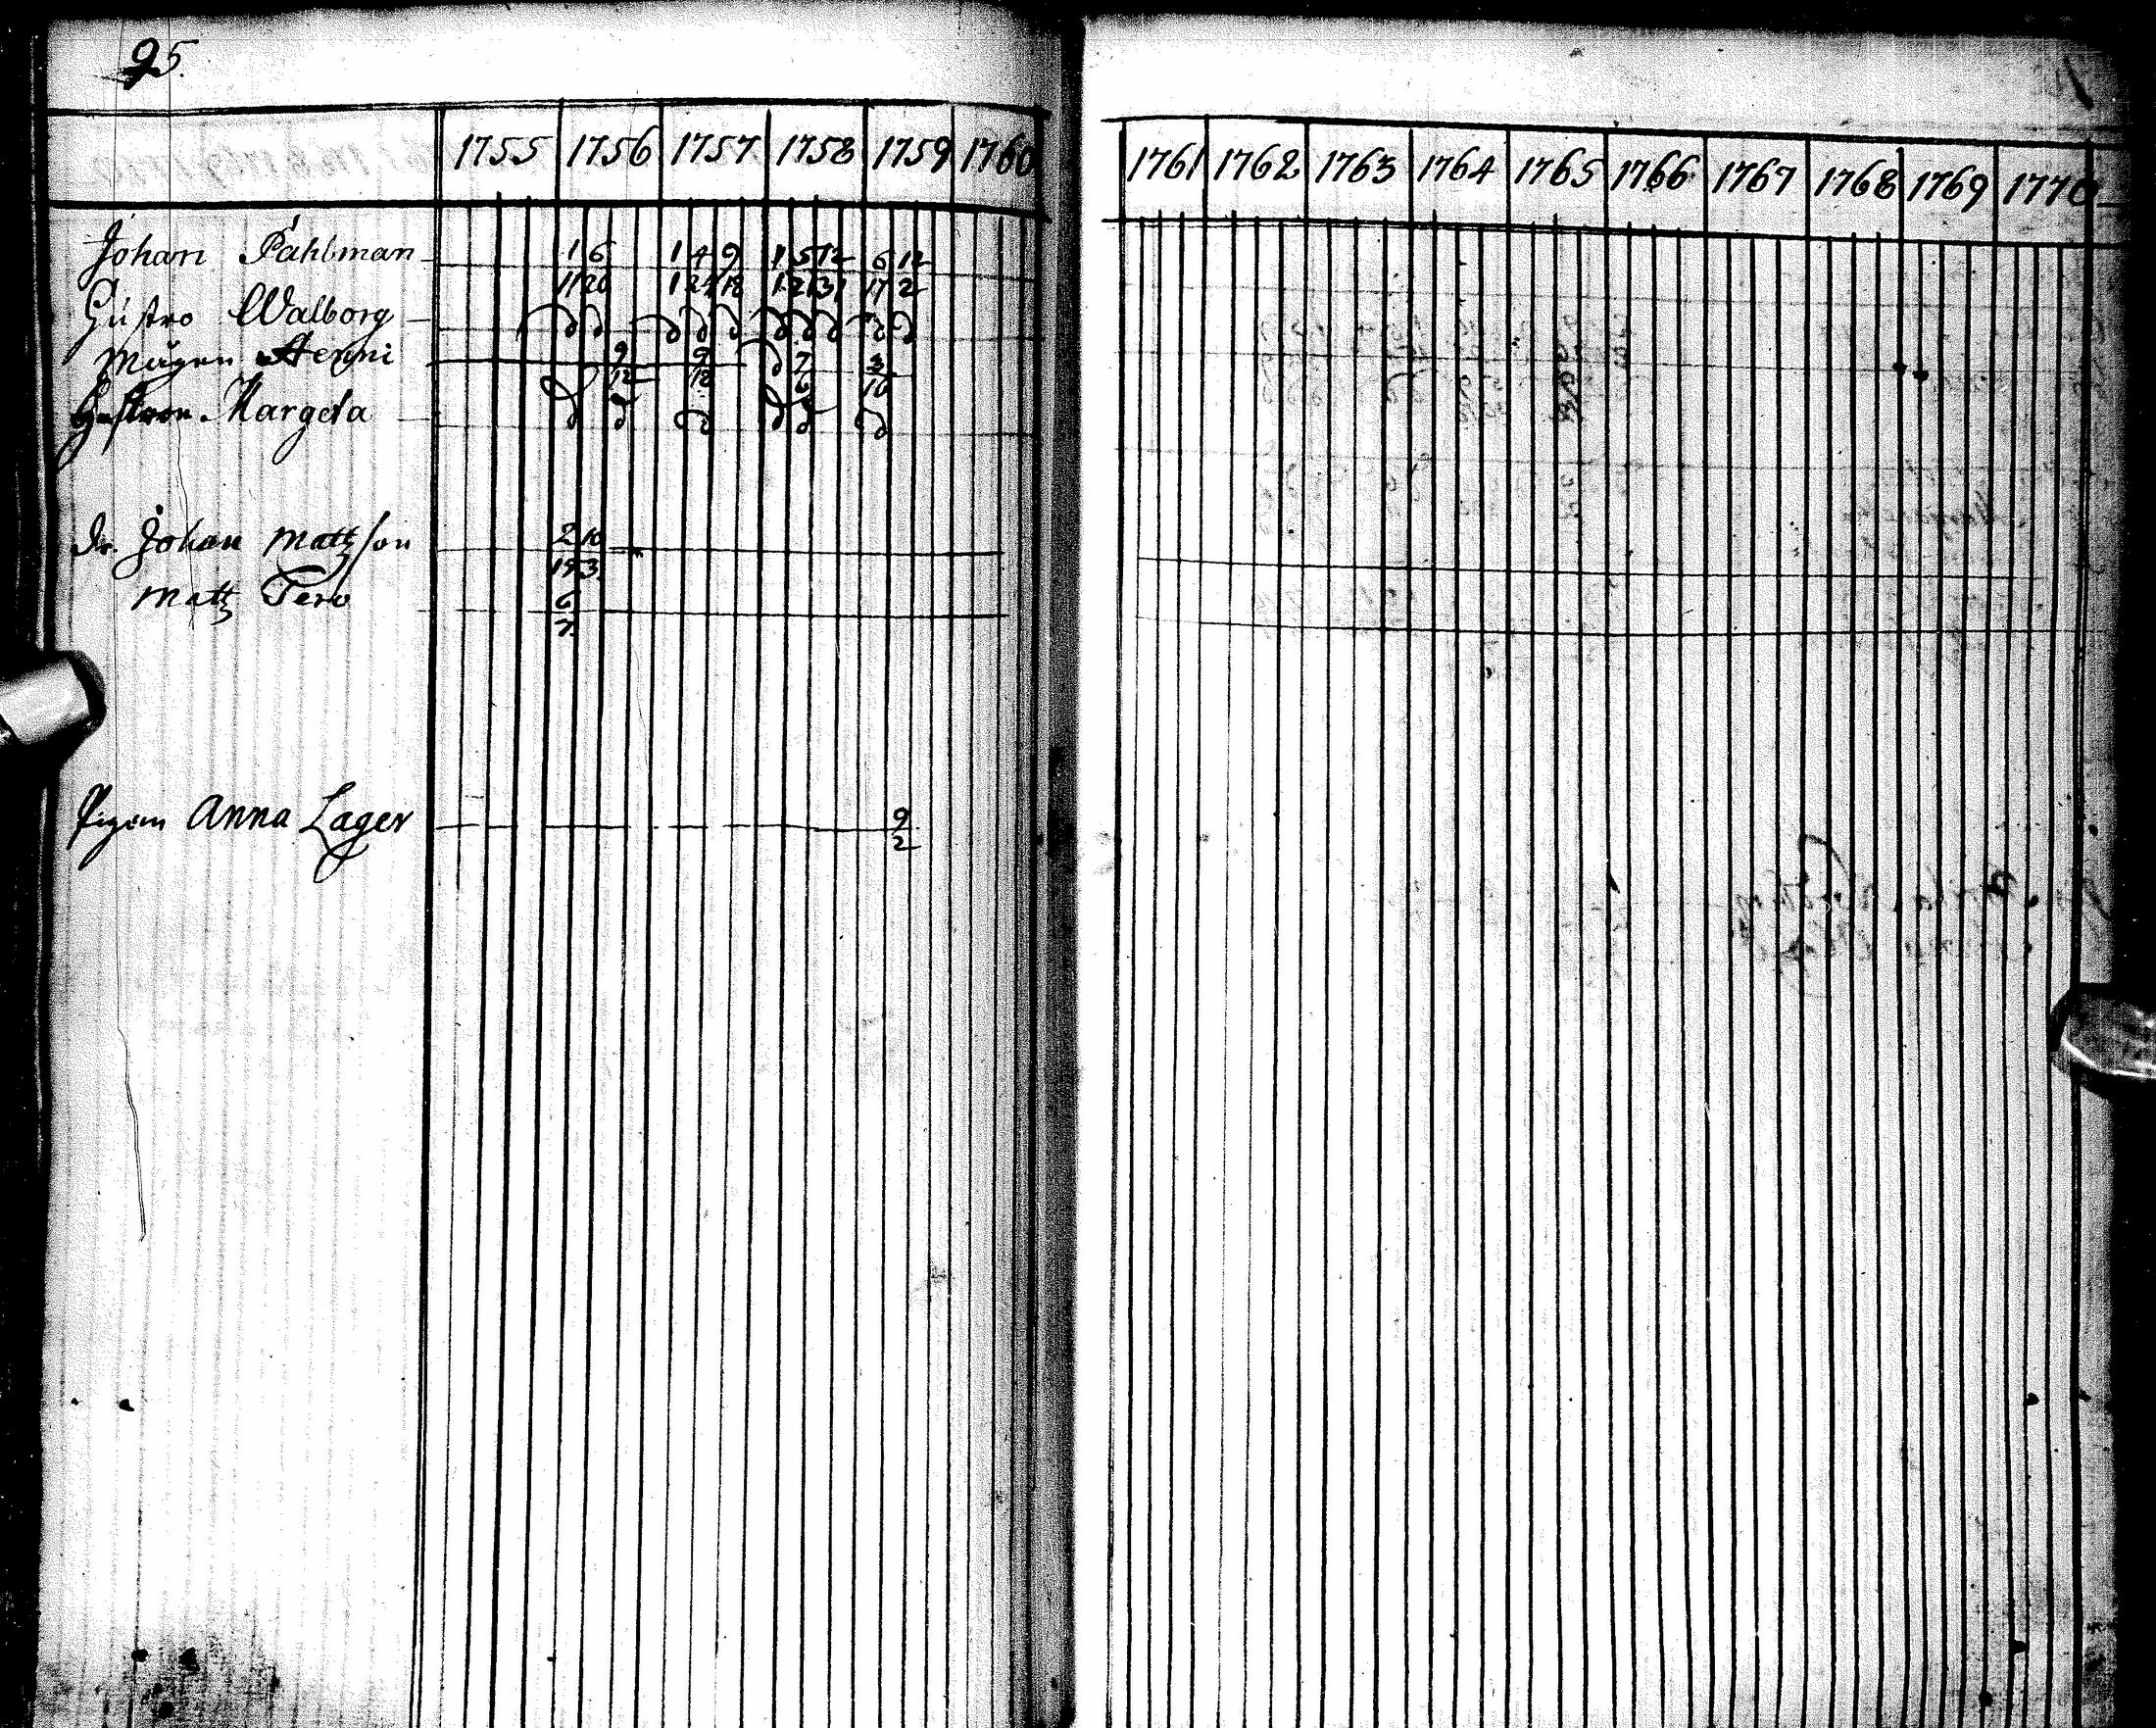 95.
1755 1756 1757 1758 1759 1760 1761 1762 1763 1764 1765 1766 1767 1768 1769 1770
Johan Påhlman 1 6 1 4 9 1 5 12 6 12
11 20 1 24 18 1 2 31 17 2
Hústro Walborg
Mågen Henni 9 9 7 3
12 18 6 16
Hústron Margeta
dr. Johan Mattzson 2 10
19 3
Mattz Tervo 6
7
Pigan Anna Lager 9
2